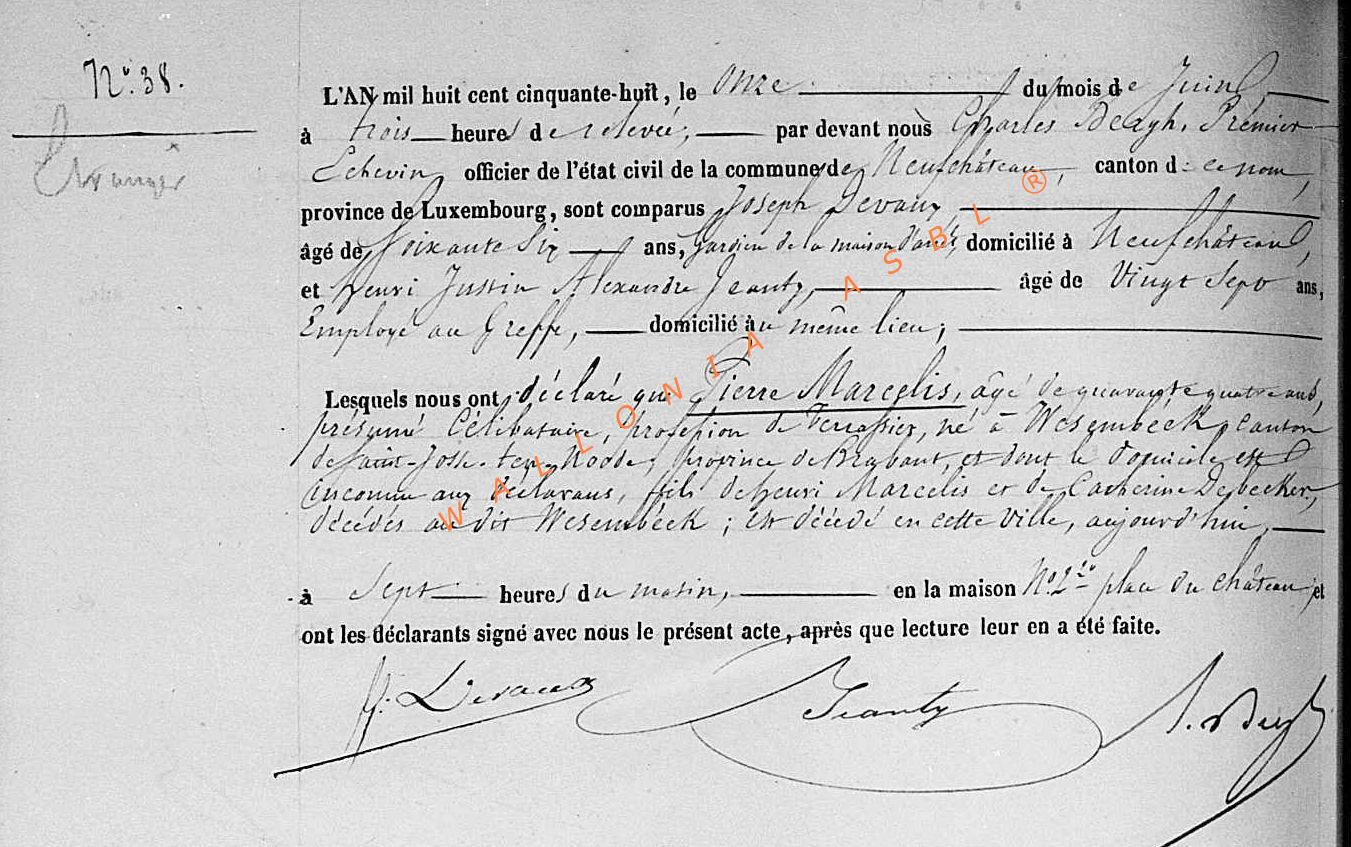 N.° 38.
Etranger
L'AN mil huit cent cinquante-huit, le onze du mois de Juin,
à trois heures de relevée, par devant nous Charles Bergh, Prémier
Echevin, officier de l'état civil de la commune de Neufchâteau, canton de ce nom,
province de Luxembourg, sont comparus Joseph Devaux,
âgé de Soixante Six ans, Gardien de la maison d'arrêt, domicilié à Neufchâteau,
et Henri Justin Alexandre Jeanty, âgé de Vingt Sept ans,
Employé au Greffe, domicilié au même lieu;
Lesquels nous ont déclaré que Pierre Marcelis, âgé de quarante quatre ans,
présumé Célibataire, profession de Terrassier, né à Wesembéek, Canton
de Saint-Josse-ten-Noode, province de Brabant, et dont le domicile est
inconnu aux déclarans, fils de Henri Marcelis et de Catherine Debecker,
décédés au dit Wesembéek; est décédé en cette Ville, aujourd'hui,
à Sept heures du matin, en la maison N.° 2 place du château, et
ont les déclarants signé avec nous le présent acte, après que lecture leur en a été faite.
Devaux Jeanty Bergh
WALLONIA ASBL ®